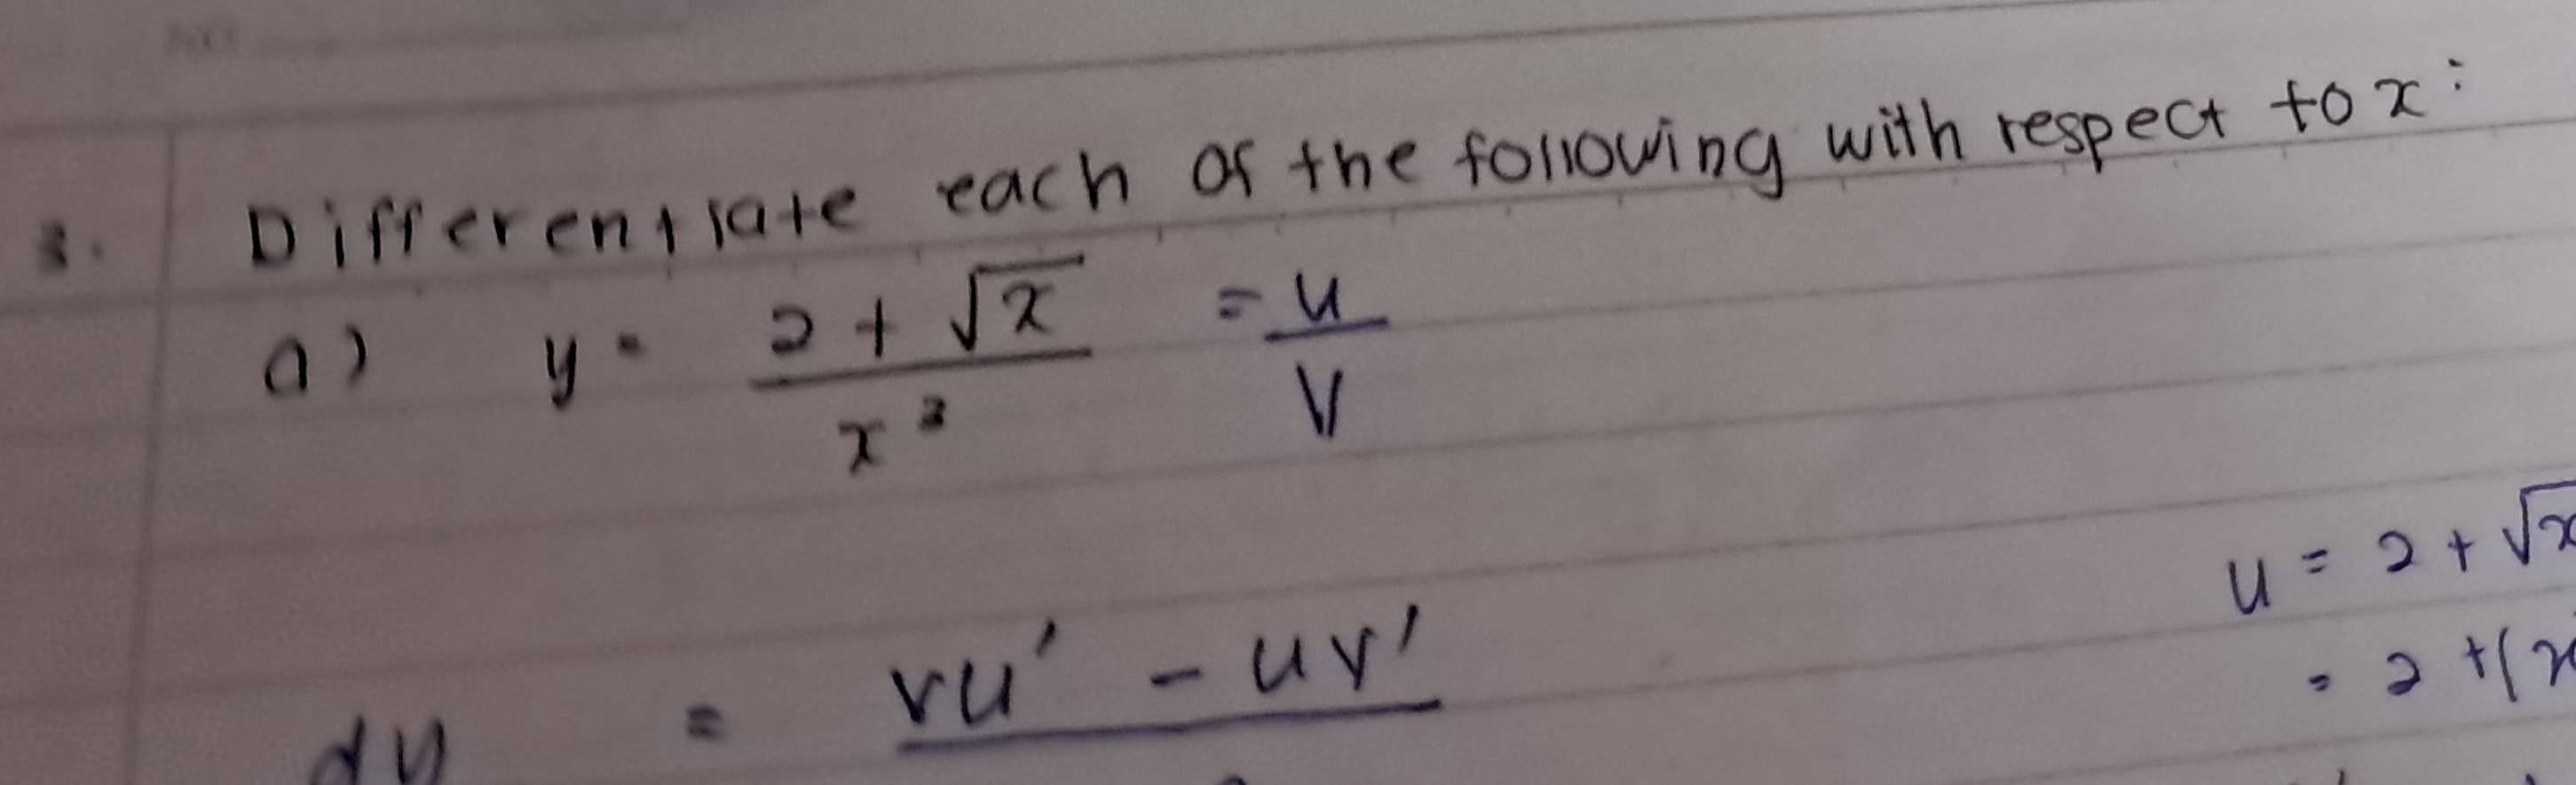 Differentiate each of the following with respect to x:
a) y = 2 + √x / x² = u / v
u = 2 + √x
= 2 + (x
dy = vu' - uv'